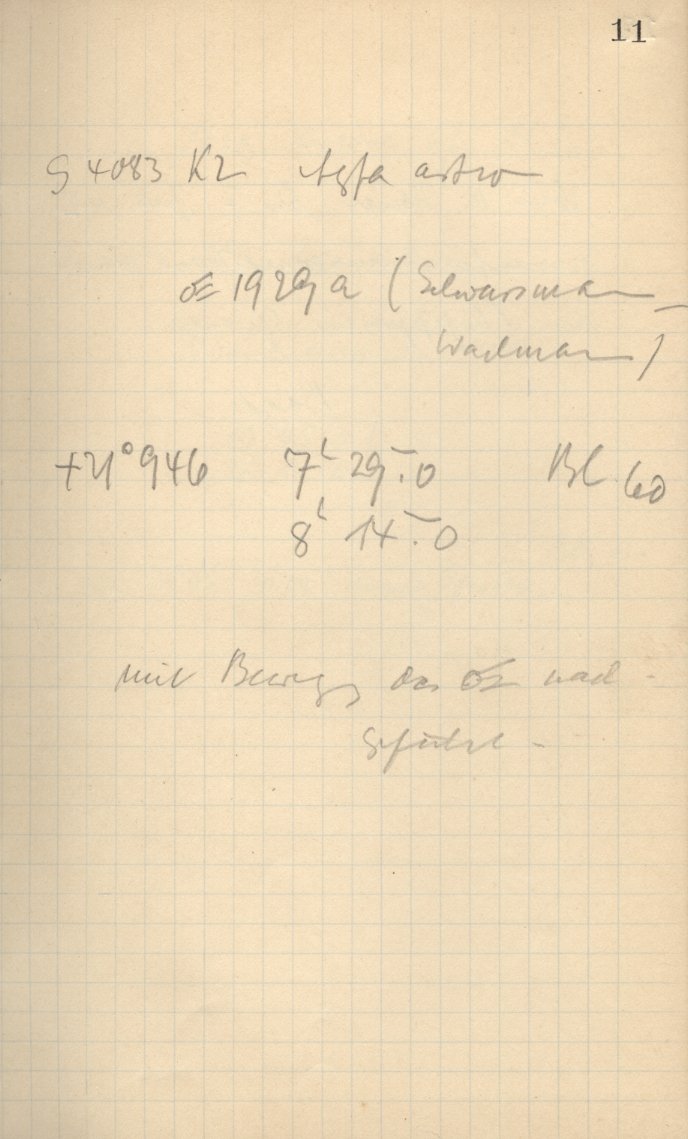 11
G 4083 K2 Agfa astro
☄ 1929 a (Schwassmann
Wachmann)
+21° 946 7h 29m.0 Bl 60
8h 14m.0
mit Bewegg des ☄ nach-
geführt -